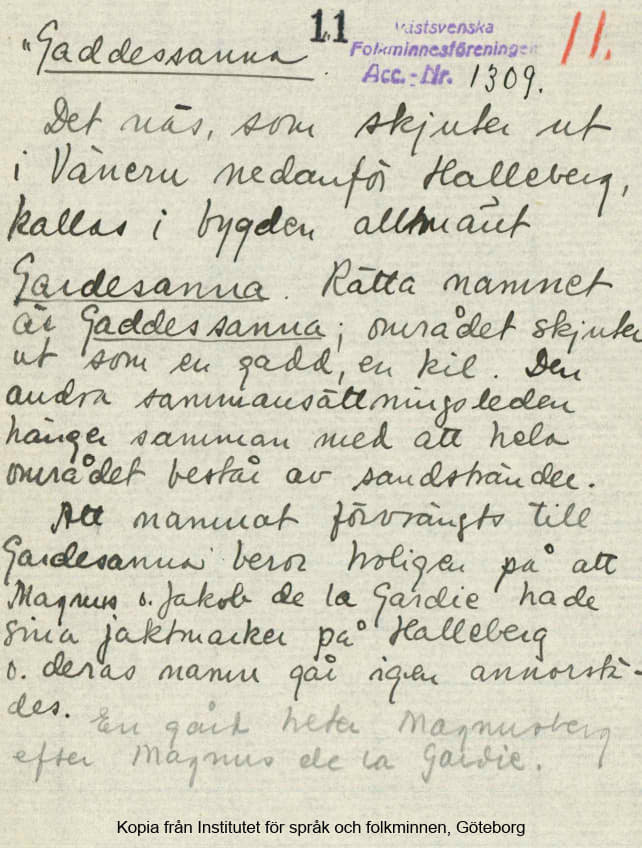 11
Västsvenska
Folkminnesföreningen
11.
Acc.-Nr. 1309.
"Gaddessanna.
Det näs, som skjuter ut
i Vänern nedanför Halleberg,
kallas i bygden allmänt
Gardesanna. Rätta namnet
är Gaddessanna; området skjuter
ut som en gadd, en kil. Den
andra sammansättningsleden
hänger samman med att hela
området består av sandstränder.
Att namnat förvrängts till
Gardesanna beror troligen på att
Magnus o. Jakob de la Gardie hade
sina jaktmarker på Halleberg
o. deras namn går igen annorstä-
des. En gård heter Magnusberg
efter Magnus de la Gardie.
Kopia från Institutet för språk och folkminnen, Göteborg